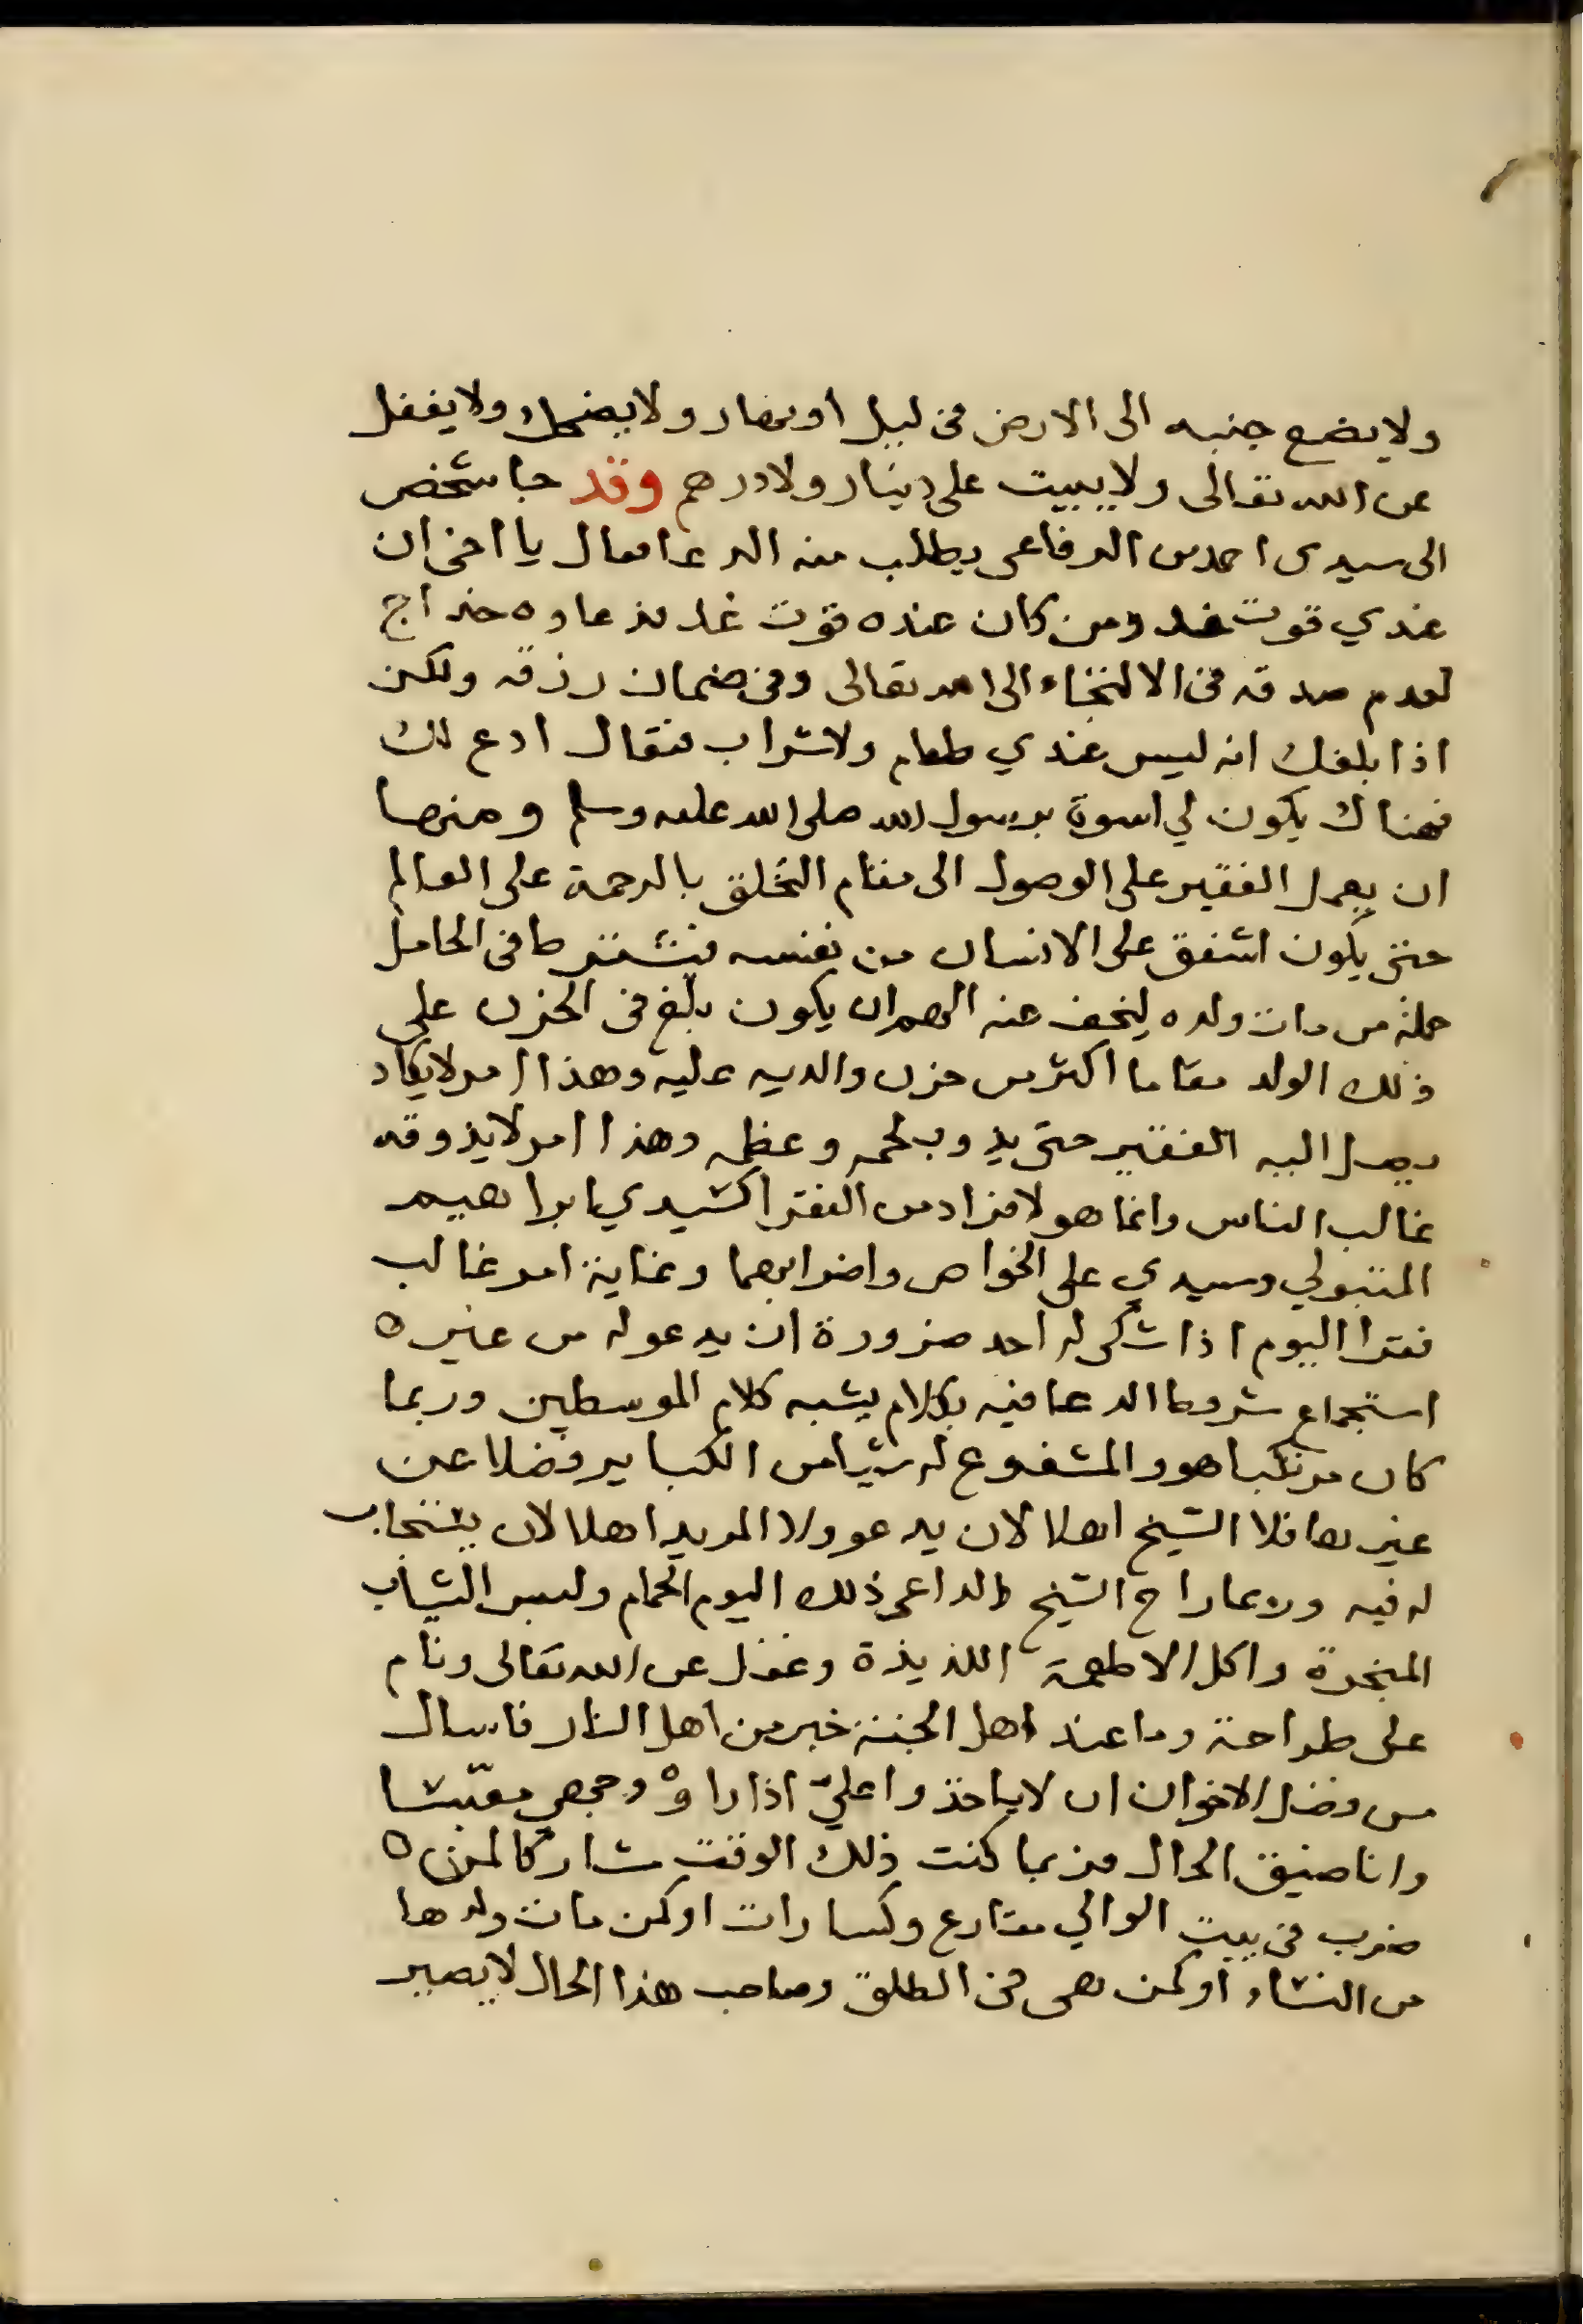 ولا يضع جنبه الى الارض فى ليل او نهار ولا يضحك ولا يغفل
عن الله تعالى ولا يبيت على دينار ولا درهم وقد جا شخص
الى سيدى احمد بن الرفاعى يطلب منه الدعا فقال يا اخى ان
عندي قوت غد ومن كان عنده قوت غد فدعاوه خداج
لعدم صدقه فى الالتجاء الى الله تعالى وفى ضمان رزقه ولكن
اذا بلغك انه ليس عندي طعام ولا شراب فتعال ادع لك
فهناك يكون لي اسوة برسول الله صلى الله عليه وسلم ومنها
ان يعمل الفقير على الوصول الى مقام التخلق بالرحمة على العالم
حتى يكون اشفق على الانسان من نفسه فيشترط فى الحامل
حملة من مات ولده ليخف عنه الهم ان يكون بلغ فى الحزن على
ذلك الولد مقاما اكثر من حزن والديه عليه وهذا امر لا يكاد
يصل اليه الفقير حتى يذوب لحمه وعظمه وهذا امر لا يذوقه
غالب الناس وانما هو لافراد من الفقرا كشيدي ابراهيم
المتبولي وسيدي على الخواص واضرابهما وغاية امر غالب
فقرا اليوم اذا شكى له احد ضرورة ان يدعو له من غير ه
استجماع شروط الدعا فيه بكلام يشبه كلام الموسطين وربما
كان مرتكبا هو والمشفوع له شيا من الكباير فضلا عن
غيرها فلا الشيخ اهلا لان يدعو ولا المريد اهلا لان يستجاب
له فيه وربما راح الشيخ الداعى ذلك اليوم الحمام ولبس الثياب
المبخرة واكل الاطعمة اللذيذة وغفل عن الله تعالى ونام
على طراحة وما عند اهل الجنة خبر من اهل النار فاسال
من فضل الاخوان ان لا ياخذوا عليّ اذا راوْ وجهي معبّشا
وانا ضيق الحال فربما كنت ذلك الوقت شاركا لمن ه
ضرب فى بيت الوالي مقارع وكسارات او كمن مات ولدها
من النساء او كمن هى فى الطلق وصاحب هذا الحال لا يصير